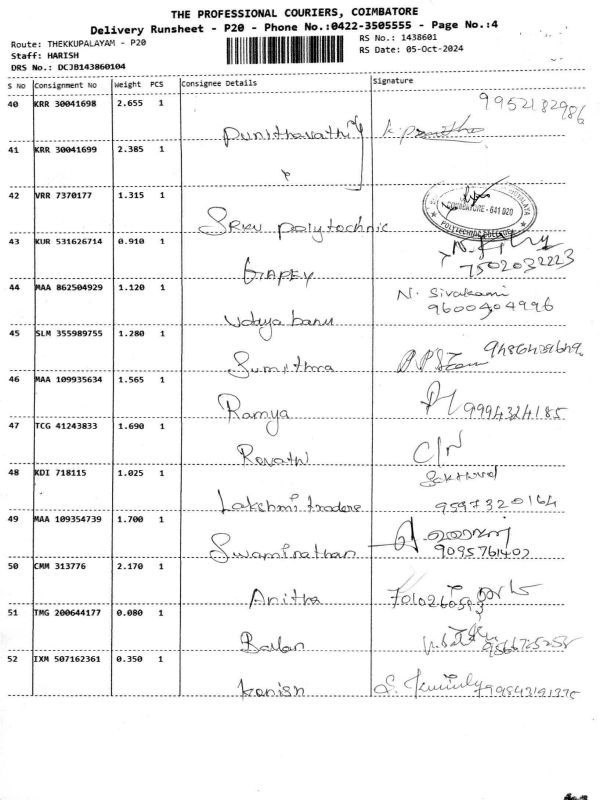 THE PROFESSIONAL COURIERS, COIMBATORE
Delivery Runsheet - P20 - Phone No.:0422-3505555 - Page No.:4
Route: THEKKUPALAYAM - P20
RS No.: 1438601
Staff: HARISH
RS Date: 05-Oct-2024
DRS No.: DCJB143860104
S No Consignment No Weight PCS Consignee Details Signature
40 KRR 30041698 2.655 1 Punithavathi 9952182986
41 KRR 30041699 2.385 1
42 VRR 7370177 1.315 1 SRKV polytechnic
COIMBATORE - 641 020
POLYTECHNIC COLLEGE
43 KUR 531626714 0.910 1 7502032223
44 MAA 862504929 1.120 1 Vidya banu N. Sivakami
9600404996
45 SLM 355989755 1.280 1 Sumithra
46 MAA 109935634 1.565 1 Ramya 9994324185
47 TCG 41243833 1.690 1 Revathi
48 KDI 718115 1.025 1 Lakshmi traders Sakthivel
9597320164
49 MAA 109354739 1.700 1 Swaminathan
50 CMM 313776 2.170 1 Anitha
51 TMG 200644177 0.080 1
52 IXM 507162361 0.350 1 Kanish